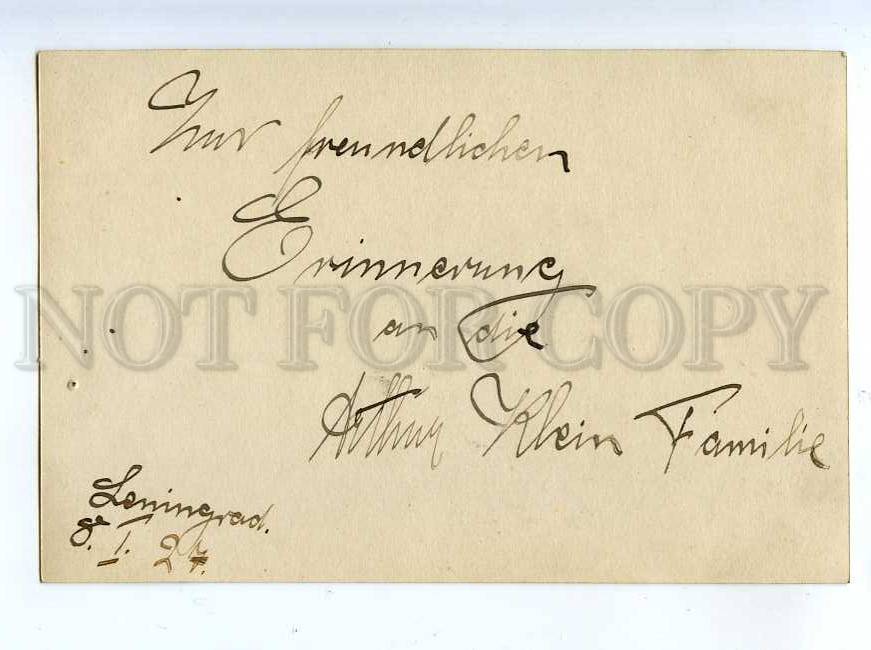 Zur freundlichen
Erinnerung
an die
NOT FOR COPY
Arthur Klein Familie
Leningrad.
8. I. 27.